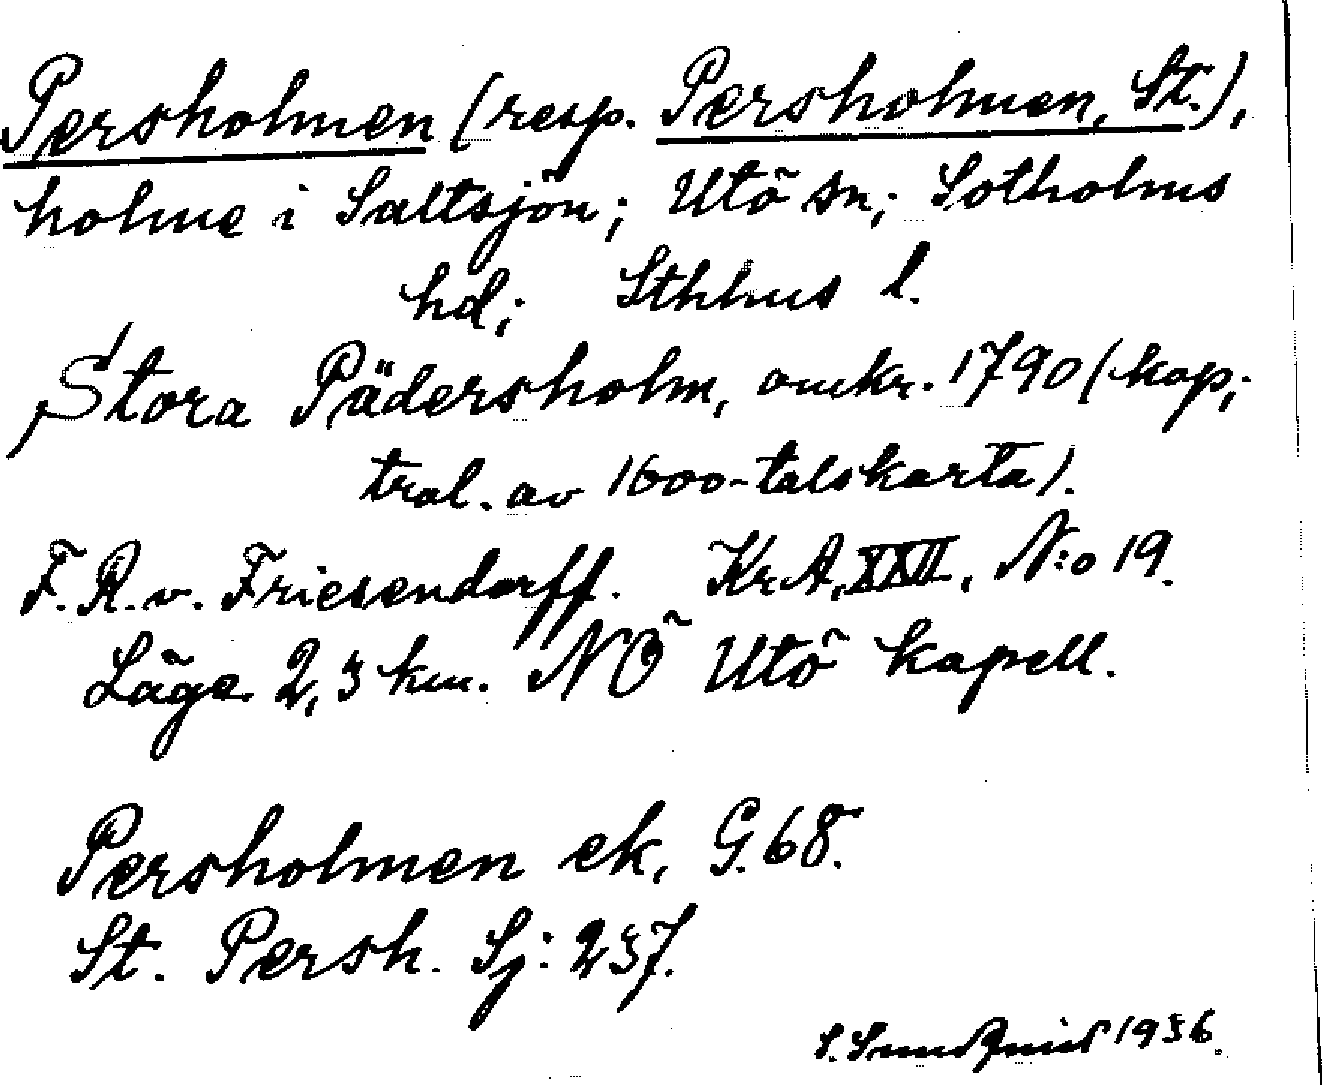 Persholmen (resp. Persholmen, St.),
holme i Saltsjön; Utö sn; Sotholms
hd; Sthlms l.
Stora Pädersholm, omkr. 1790 (kop;
trol. av 1600-talskarta).
F. R. v. Friesendorff. Kr A, XXII, N:o 19.
Läge 2,3 km. NÖ Utö kapell.
Persholmen ek, G. 68.
St. Persh. Sj: 237.
S. Sundquist 1936.